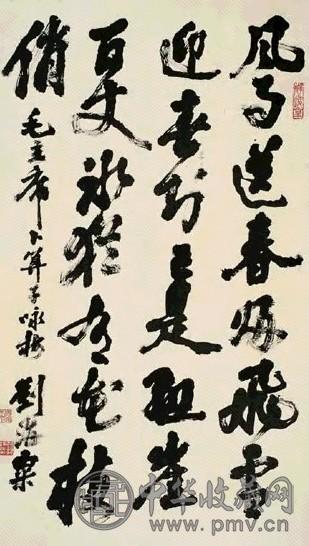 風雨送春歸飛雪
迎春到已是懸崖
百丈冰猶有花枝
俏
毛主席卜算子咏梅 劉海粟
中华收藏网
www.pmv.cn